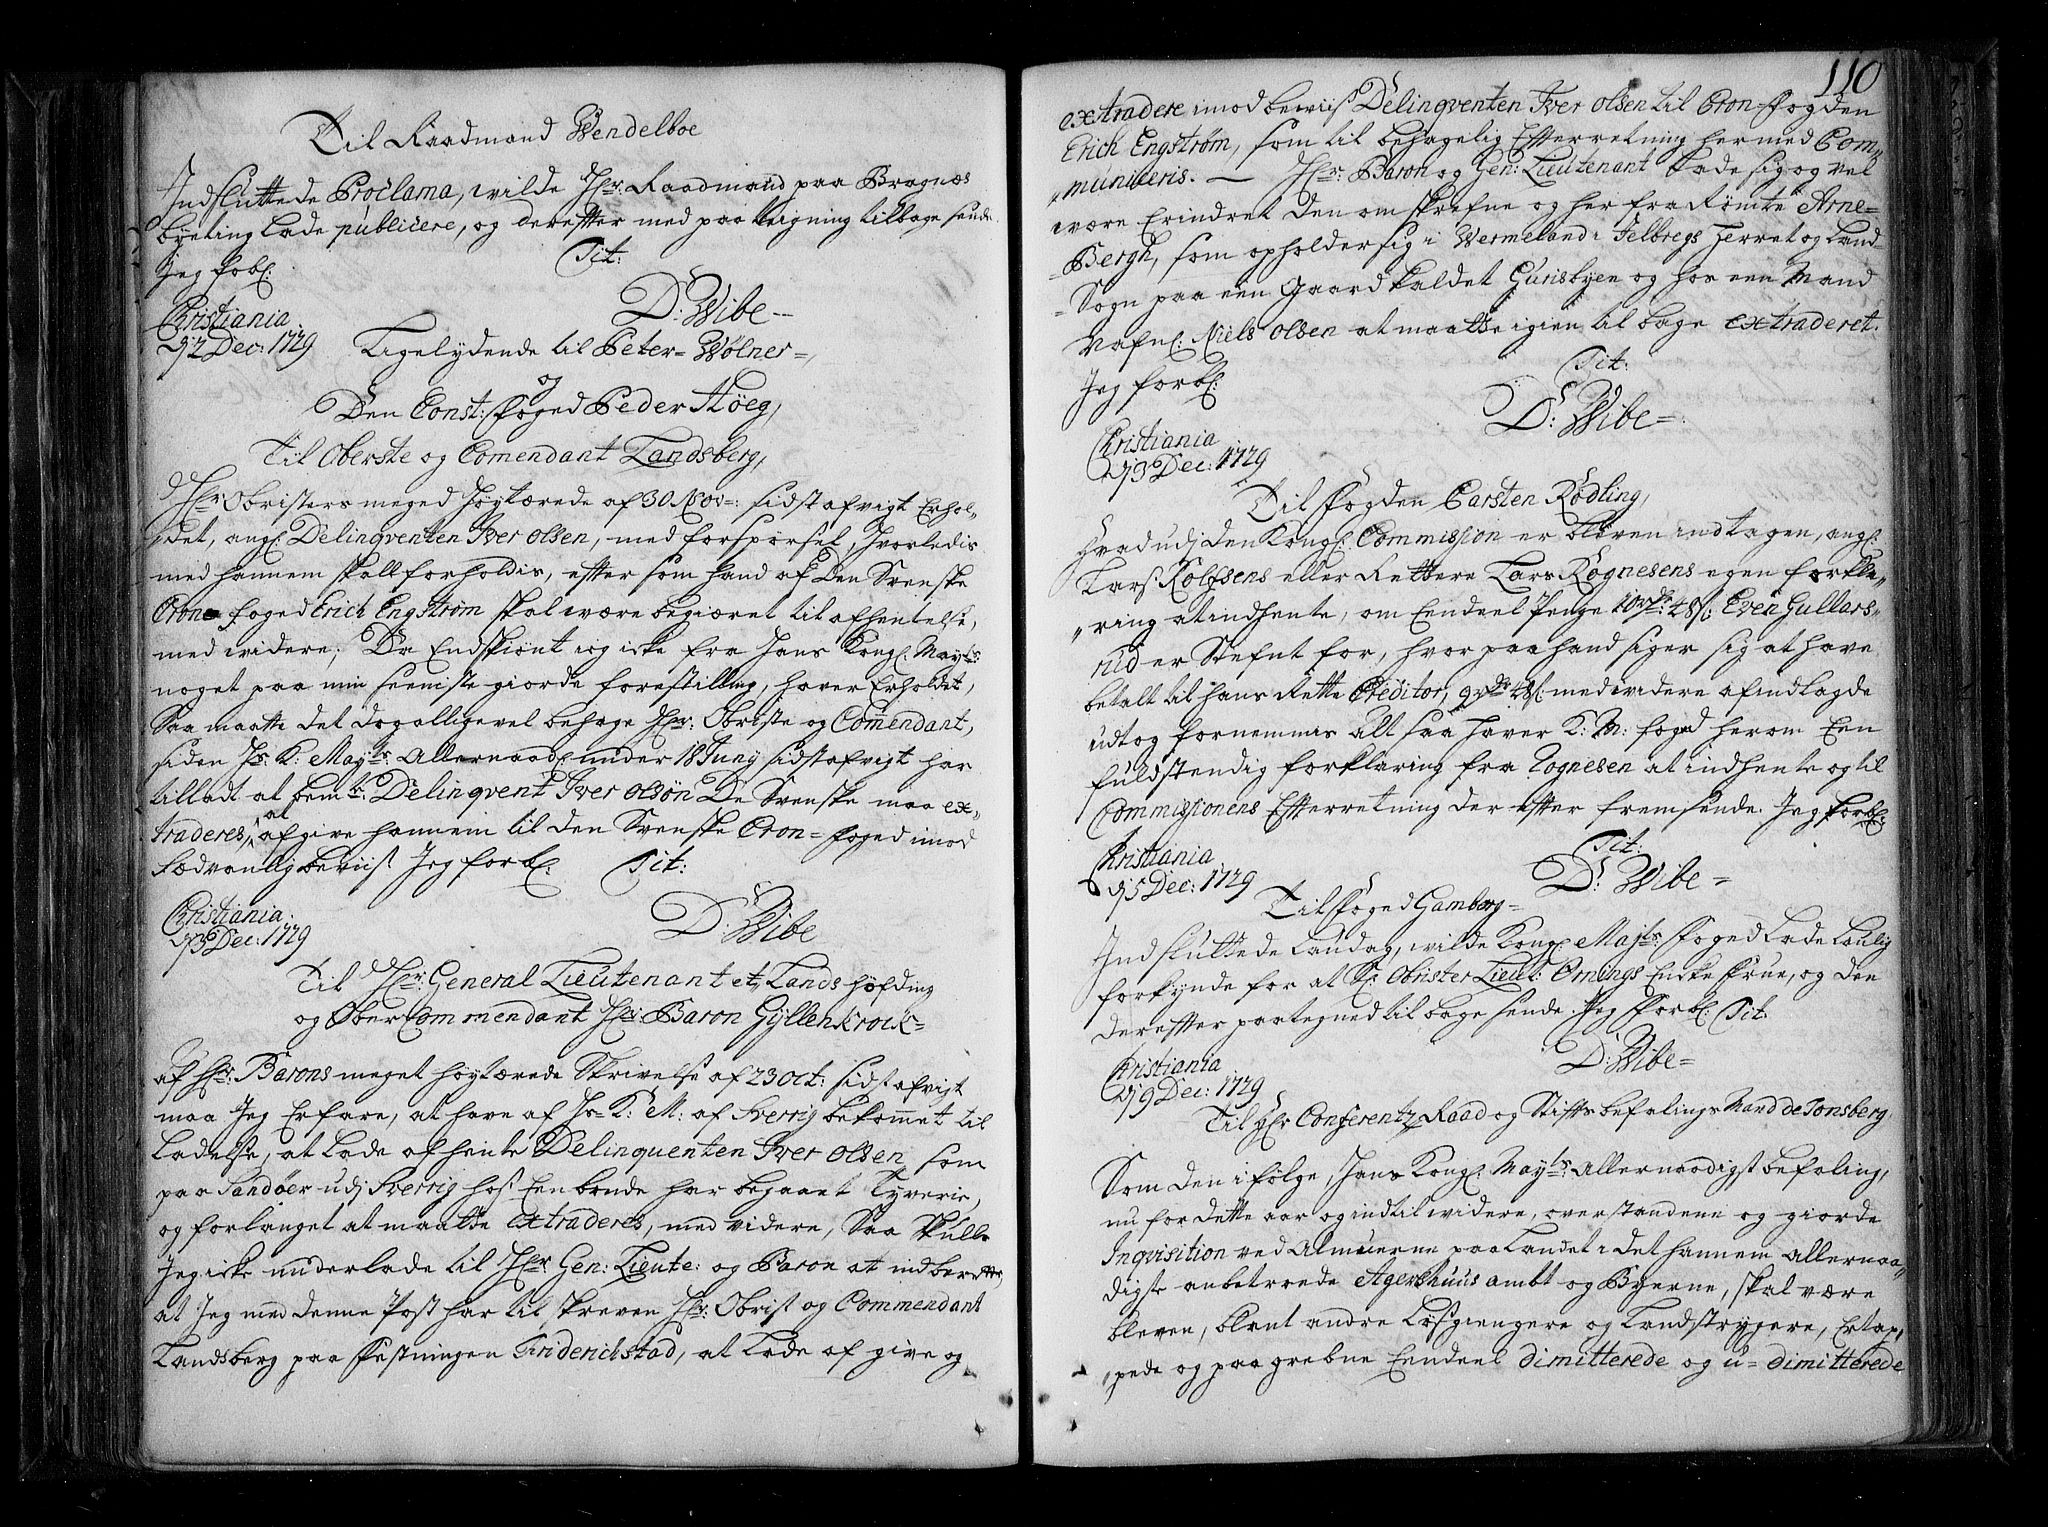 Til Raadmand Wendelboe
Indsluttede Proclama, wilde Hr: Raadmand paa Bragnæs
byeting lade publicere, og derefter med paateigning tilbage sende.
Jeg forbl: Tit:
D: Wibe
Christiania
d 2 Dec: 1729
Ligelydende til Peter Wølner
og
Den Const: foged Peder Høeg,
Til Oberste og Comendant Landsberg,
Hr: Obristers meged Høytærede af 30 Nov: sidst afvigt Erhol-
det, ang: Delinqventen Iver Olsen, med forspørsel, hvorledis
med hannem skall forholdis, efftersom hand af Den Svenske
Cron foged Erich Engstrøm skal være begiæret til afhentelse,
med widere; Da Endskiønt ieg icke fra Hans Kongl. Mayts:
noget paa min seeniste giorde forestilling, haver Erholdet,
Saa maatte det dog alligevel behage Hr: Obriste og Comendant,
siden Hs: K: Mayts: Allernaadl: under 18 Juny sidst afvigt har
tilladt at bemte: Delinqvent Iver Olsøn De Svenske maa ex-
traderes, at afgive hannem til den Svenske Cron= foged imod
sædvanlig beviis. Jeg forbl. Tit:
Christiania
d 3 Dec: 1729
D: Wibe
Til Hr: General Lieutenant et, Landshöfding
og Øber Commendant Hr: Baron Gyllenkrock=
af Hr: Barons meget høytærede Skrivelse af 23 Oct: sidst afvigt
maa Jeg Erfare, at have af Hs= K: M: af Sverrig bekommet til
ladelse, at lade afhente Delinquenten Iver Olsen, som
paa Sandøer udj Sverrig hos Een bonde har begaaet Tyverie,
og forlanget at maatte extraderes, med videre, Saa skulle
Jeg icke underlade til Hr Gen: Lieute: og Baron at indberette,
at Jeg med denne Post har tilskreven Hr: Obrist og Commendant
Landsberg paa Festningen Friderichstad, at lade afgive og
110
extradere imod beviis Delinqventen Iver Olsen til Cron fogden
Erich Engstrøm, som til behagelig Efterretning hermed Com-
municeris. — Hr: Baron og Gen: Lieutenant lade sig og vel
være Erindret den omskrefne og herfra Rømte Arne=
=Bergh, som opholder sig i Wermeland i Jelbregs Herret og Land=
=Sogn paa een Gaard kaldet Gunsbyen og hos een Mand
Nafnl: Niels Olsen at maatte igien tilbage extraderet.
Jeg forbl: Tit:
D: Wibe=
Christiania
d 3 Dec: 1729
Til Fogden Carsten Rødling,
Hvad udj den Kongl. Commission er bleven indtagen, angl:
Lars Rolfsens eller Rettere Lars Rognesens egen forkla-
ring at indhente, om Eendeel Penge 10 rdr: 48 s: Even Gullars-
rud er Stefnt for, hvorpaa hand siger sig at have
betalt til hans Rette Creditor, 9 rdr 48 s: med widere af indlagde
udtog fornemmis alt saa haver K: M: foged herom Een
fuldstendig forklaring fra Rognesen at indhente og til
Commissionens Efterretning der efter fremsende. Jeg forbl:
Tit:
Christiania
d 5 Dec: 1729
D: Wibe=
Til Foged Gamberg=
Indsluttede Laudag, wilde Kongl Majts: foged lade Lovlig
forkynde for Sl: Obrister Lieut: Ornings Encke frue, og den
derefter paategned tilbage sende. Jeg forbl: Tit.
D: Wibe=
Christiania
d 9 Dec: 1729
Til Hr Conferentz Raad og Stiftsbefalings Mand de Tonsberg.
Som den i følge, Hans Kongl: Mayts: Allernaadigst befaling,
nu for dette aar og indtil widere, overstandene og giorde
Inqvisition ved Almuerne paa Landet i det hannem Allernaa-
digst anbetroede Agershuus ambt og Byerne, skal være
bleven, blant andre Løsgiengere og Landstrygere, Ertap-
pede og paagrebne Eendeel dimitterede og u= dimitterede